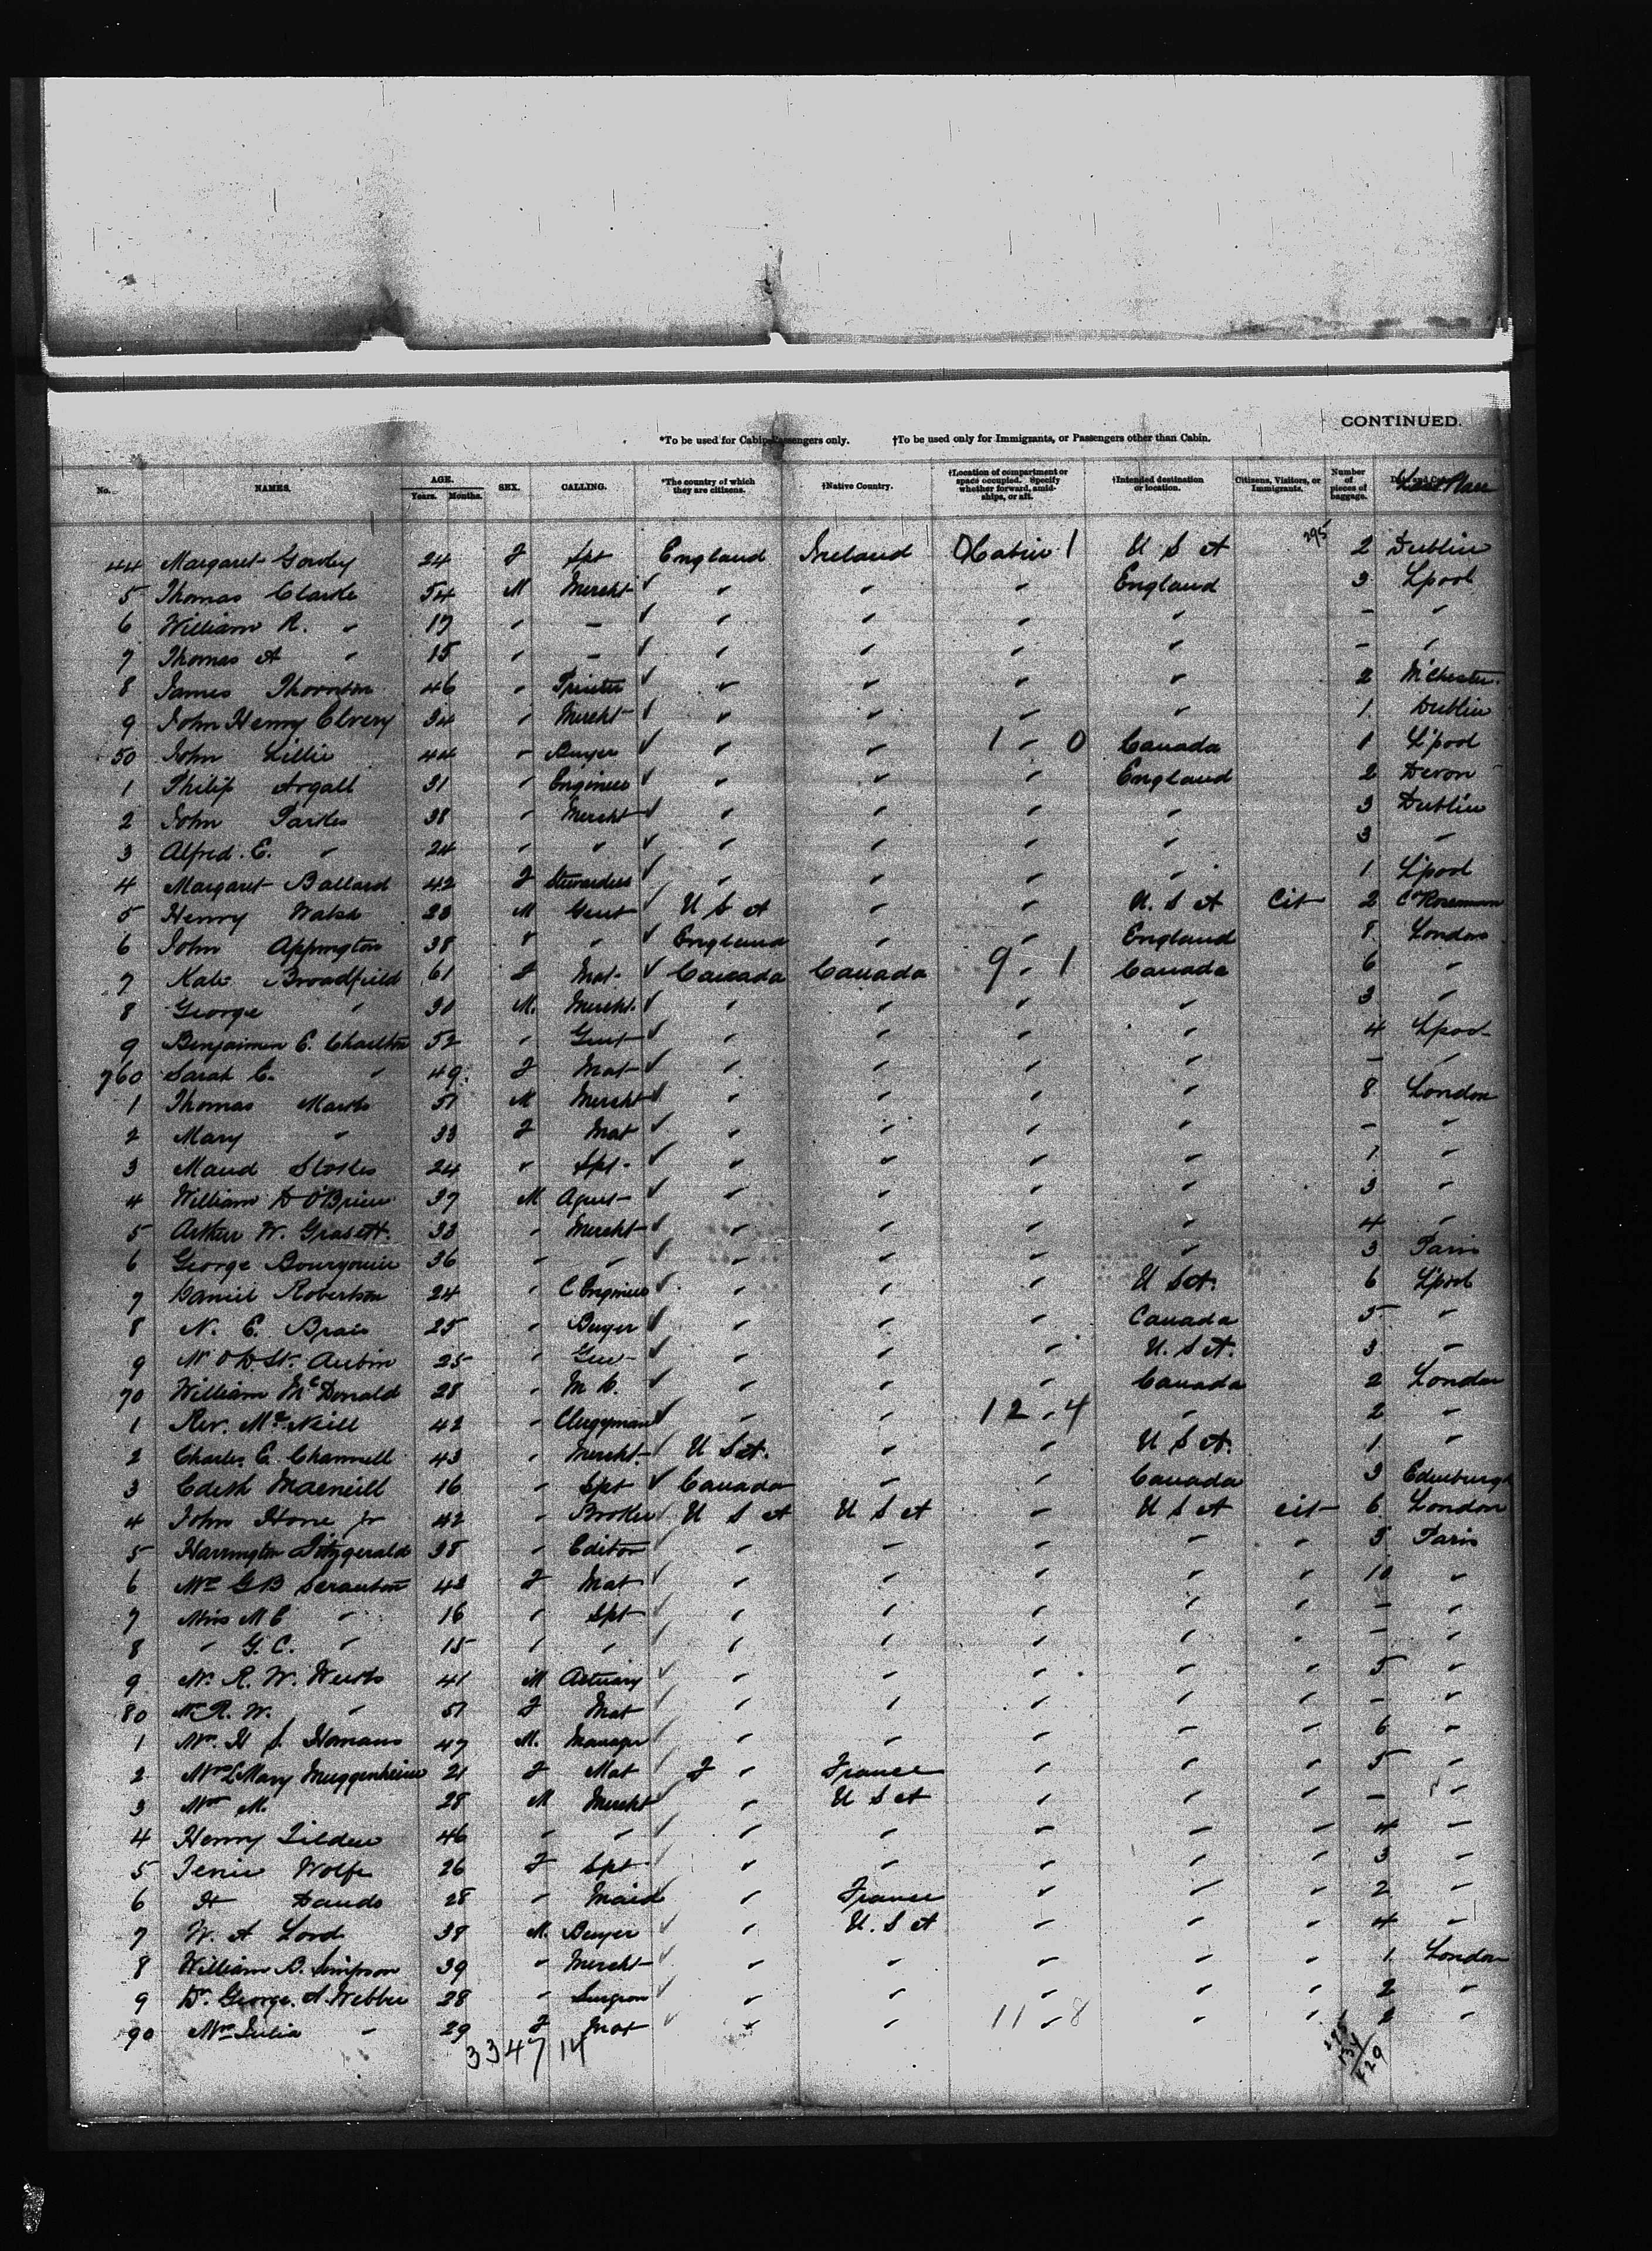 CONTINUED.
*To be used for Cabin Passengers only. †To be used only for Immigrants, or Passengers other than Cabin.
No. NAMES. AGE. Years. Months. SEX. CALLING. *The country of which they are citizens. †Native Country. †Location of compartment or space occupied. Specify whether forward, amidships, or aft. †Intended destination or location. Citizens, Visitors, or Immigrants. Number of pieces of baggage.
295
44 Margaret 24 F Spt England Ireland Cabin 1 U S A 2 Dublin
5 Thomas Clarke 54 M Mercht ✓ " " " England 3 Lpool
6 William R. " 17 " - ✓ " " " " - "
7 Thomas A " 15 " - ✓ " " " " - "
8 James Thornton 46 " Printer ✓ " " " " 2 M'chester
9 John Henry Elvery 34 " Mercht ✓ " " " " 1 Dublin
50 John Lillie 44 " Buyer ✓ " " 1 - 0 Canada 1 L'pool
1 Philip Argall 31 " Engineer ✓ " " " England 2 Devon
2 John Parkes 38 " Mercht ✓ " " " " 3 Dublin
3 Alfred. E. " 24 " " ✓ " " " " 3 "
4 Margaret Ballard 42 F Stewardess ✓ " " " " 1 L'pool
5 Henry 23 M Gent ✓ U S A " " U. S A Cit 2
6 John Appington 38 " " ✓ England " " England 8 London
7 Kate Broadfield 61 F Mat ✓ Canada Canada 9 - 1 Canada 6 "
8 George " 30 M. Mercht ✓ " " " " 3 "
9 Benjaimen E. Charlton 52 " Gent ✓ " " " " 4 Lpool
760 Sarah E. " 49 F Mat ✓ " " " " - "
1 Thomas Marks M Mercht ✓ " " " " 8 London
2 Mary " 33 F Mat ✓ " " " " - "
3 Maud Stokes 24 " Spt ✓ " " " " 1 "
4 William D O'Brien 37 M Agent ✓ " " " " 3 "
5 Arthur W. Grasett. 33 " Mercht ✓ " " " " 4 "
6 George Bourgouin 36 " " ✓ " " " " 3 Paris
7 Daniel Robertson 24 " C Engineer ✓ " " " U S A. 6 L'pool
8 N. E. Brais 25 " Buyer ✓ " " " Canada 5 "
9 St. Aubin 25 " ✓ " " " U. S A. 3 "
70 William McDonald 28 " ✓ " " " Canada 2 London
1 Rev. McNeill 42 " Clergyman ✓ " " 12 - 4 " 2 "
2 Charles E. Channell 43 " Mercht ✓ U S A. " " U S A. 1 "
3 Edith Macneill 16 " Spt ✓ Canada " " Canada 3 Edinburgh
4 John Hone Jr 42 " Broker ✓ U S A U S A " U S A cit 6 London
5 Harrington Fitzgerald 38 " Editor ✓ " " " " " 5 Paris
6 Mrs G B Scranton 43 F Mat ✓ " " " " " 10 "
7 Miss M E " 16 " Spt ✓ " " " " " - "
8 " G. C. " 15 " " ✓ " " " " " - "
9 Mr. R. W. Weeks 41 M Actuary ✓ " " " " " 5 "
80 R. W. " F Mat ✓ " " " " " - "
1 Mr. H S. Homans 47 M. Manager ✓ " " " " " 6 "
2 Mary Muggenheim 21 F Mat ✓ F " France " " " 5 "
3 Mr M. 28 M Mercht ✓ " U S A " " " - "
4 Henry Tilden 46 " " ✓ " " " " " 4 "
5 Jenie Wolfe 26 F Spt ✓ " " " " " 3 "
6 H 28 " Maid ✓ " France " " " 2 "
7 W. A Lord 38 M. Buyer ✓ " U. S A " " " 4 "
8 William B. Simpson 39 " Mercht ✓ " " " " " 1 London
9 Dr. George. A. Webber 28 " Surgeon ✓ " " " " " 2 "
90 Mrs Julia " 29 F Mat ✓ " " 11 - 8 " " 2 "
3347 14